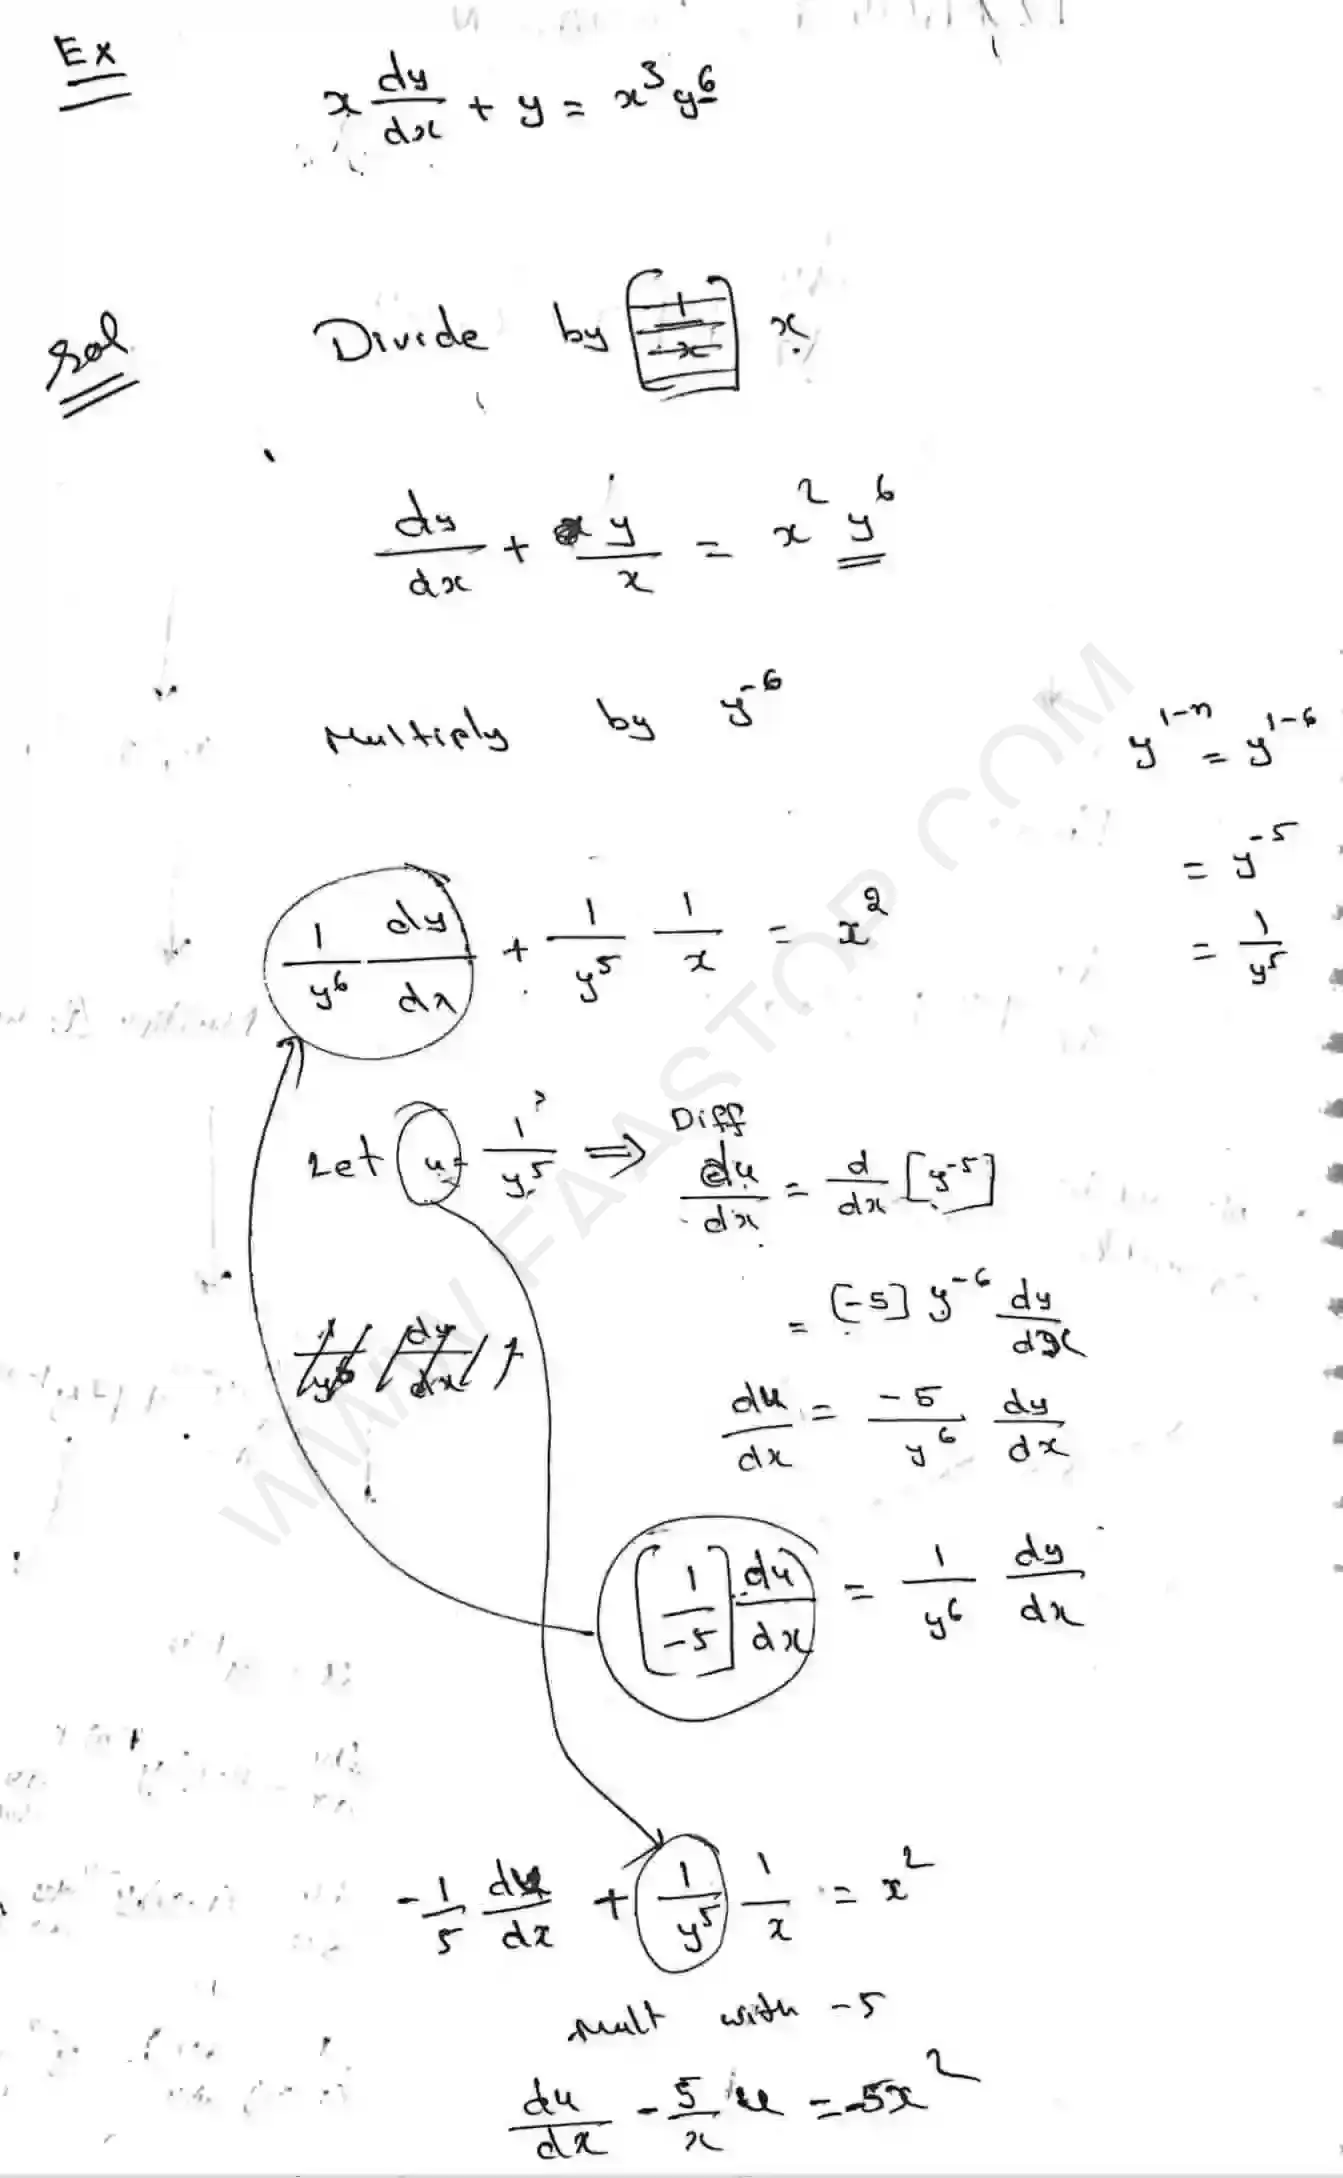 Ex
x dy/dx + y = x³y⁶
Sol
Divide by x
dy/dx + y/x = x² y⁶
Multiply by y⁻⁶
y¹⁻ⁿ = y¹⁻⁶
= y⁻⁵
= 1/y⁵
1/y⁶ dy/dx + 1/y⁵ 1/x = x²
Let u = 1/y⁵ ⇒ Diff
du/dx = d/dx [y⁻⁵]
= [-5] y⁻⁶ dy/dx
du/dx = -5/y⁶ dy/dx
[1/-5] du/dx = 1/y⁶ dy/dx
-1/5 du/dx + 1/y⁵ 1/x = x²
Mult with -5
du/dx - 5/x u = -5x²
WWW.FAASTOP.COM